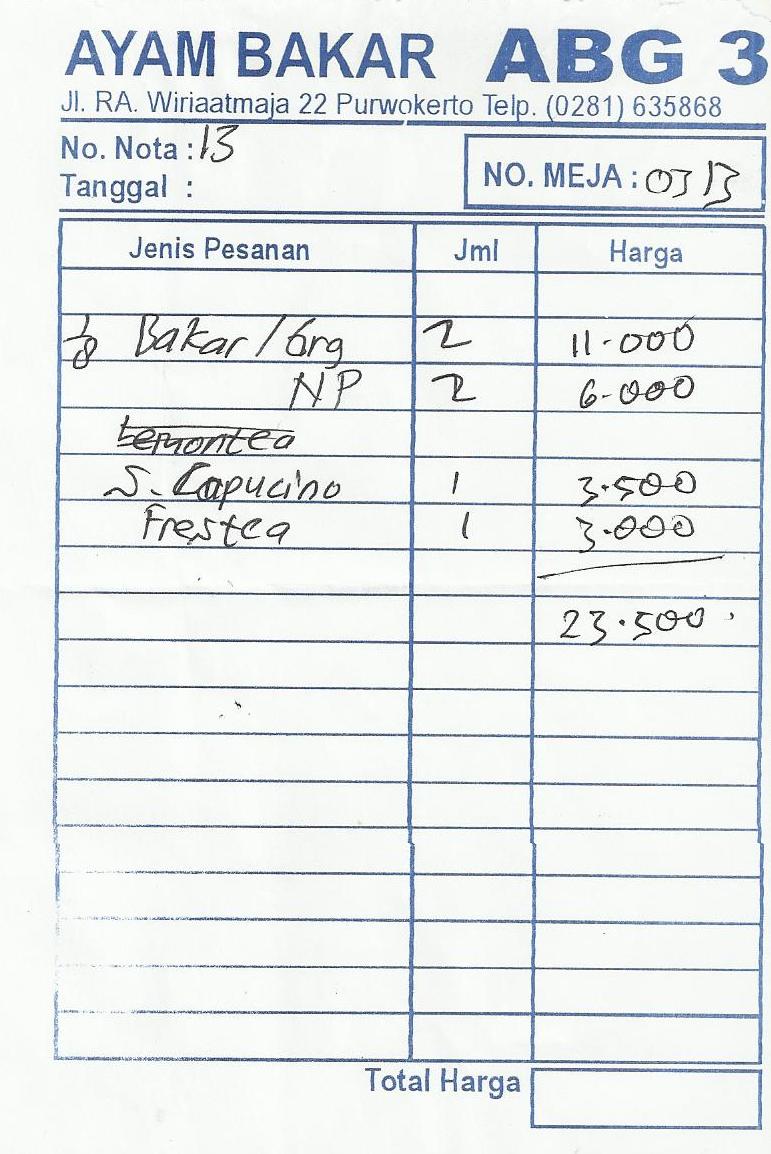 AYAM BAKAR ABG 3
Jl. RA. Wiriaatmaja 22 Purwokerto Telp. (0281) 635868
No. Nota : 13
NO. MEJA :
Tanggal :
Jenis Pesanan Jml Harga
1/8 Bakar / Grg 2 11.000
NP 2 6.000
Lemontea
S. Capucino 1 3.500
Frestea 1 3.000
23.500
Total Harga